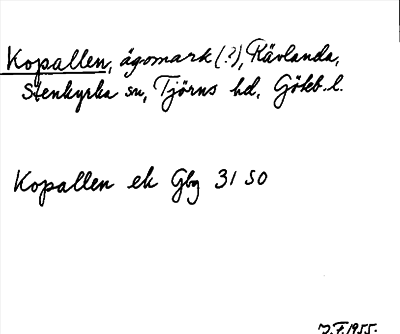 Kopallen, ägomark (?), Kävlanda,
Stenkyrka sn, Tjörns hd, Göteb. l.
Kopallen ek Gbg 31 SO
J.F. 1955.